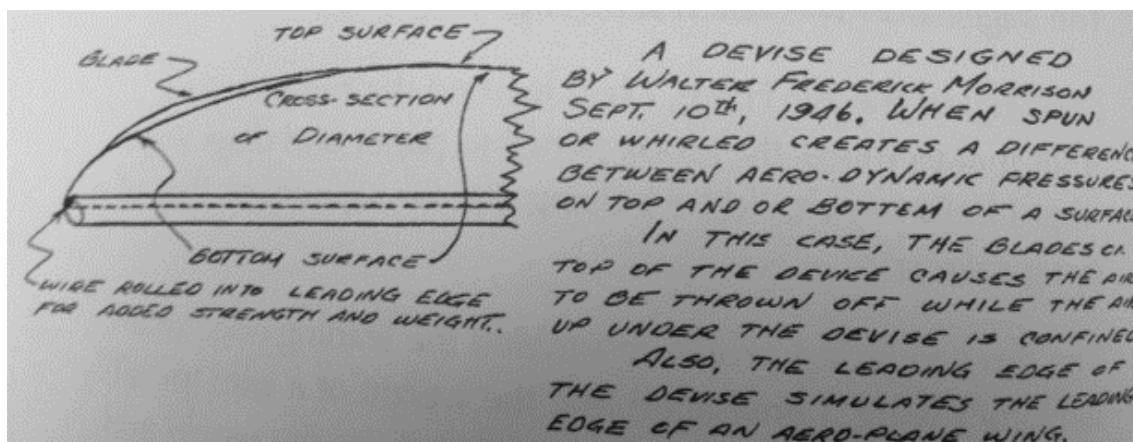 TOP SURFACE
BLADE
CROSS-SECTION
OF DIAMETER
BOTTOM SURFACE
WIRE ROLLED INTO LEADING EDGE
FOR ADDED STRENGTH AND WEIGHT..
A DEVISE DESIGNED
BY WALTER FREDERICK MORRISON
SEPT. 10th, 1946. WHEN SPUN
OR WHIRLED CREATES A DIFFERENC
BETWEEN AERO-DYNAMIC PRESSURES
ON TOP AND OR BOTTOM OF A SURFAC
IN THIS CASE, THE BLADES
TOP OF THE DEVICE CAUSES THE AIR
TO BE THROWN OFF WHILE THE AIR
UP UNDER THE DEVISE IS CONFINED
ALSO, THE LEADING EDGE OF
THE DEVISE SIMULATES THE LEADING
EDGE OF AN AERO-PLANE WING.